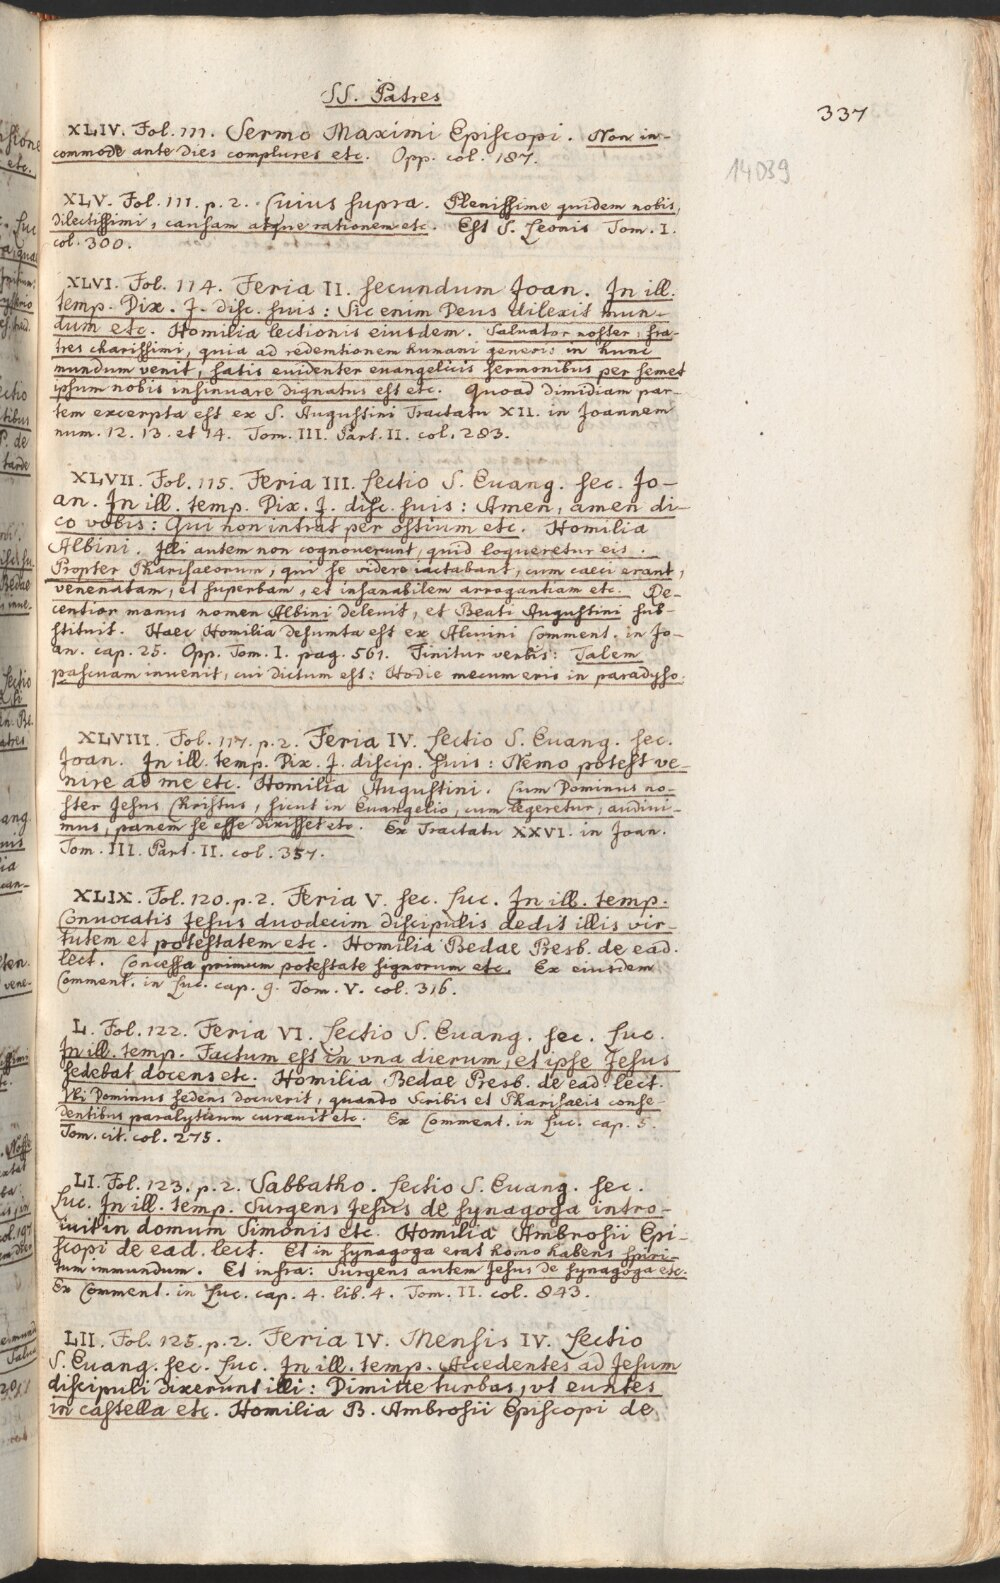 SS. Patres
337
14089
XLIV. Fol. 111. Sermo Maximi Episcopi. Non in-
commode ante dies complures etc. Opp. col. 187.
XLV. Fol. 111. p. 2. Cuius supra. Plenissime quidem nobis,
dilectissimi, causam atque rationem etc. Est S. Leonis Tom. I.
col. 300.
XLVI. Fol. 114. Feria II. secundum Joan. In ill.
temp. Dix. J. disc. suis: Sic enim Deus dilexit mun-
dum etc. Homilia lectionis eiusdem. Salvator noster, fra-
tres charissimi, quia ad redemtionem humani generis in hunc
mundum venit, satis euidenter euangelicis sermonibus per semet
ipsum nobis insinuare dignatus est etc. Quoad dimidiam par-
tem excerpta est ex S. Augustini Tractatu XII. in Joannem
num. 12. 13. et 14. Tom. III. Part. II. col. 283.
XLVII. Fol. 115. Feria III. Lectio S. Euang. sec. Jo-
an. In ill. temp. Dix. J. disc. suis: Amen, amen di-
co vobis: Qui non intrat per ostium etc. Homilia
Albini. Illi autem non cognouerunt, quid loqueretur eis.
Propter Pharisaeorum, qui se videre iactabant, cum caeci erant,
venenatam, et superbam, et insanabilem arrogantiam etc. Re-
centior manus nomen Albini deleuit, et Beati Augustini sub-
stituit. Haec Homilia desumta est ex Alcuini Comment. in Jo-
an. cap. 25. Opp. Tom. I. pag. 561. Finitur verbis: Talem
pascuam inuenit, cui dictum est: Hodie mecum eris in paradyso.
XLVIII. Fol. 117. p. 2. Feria IV. Lectio S. Euang. sec.
Joan. In ill. temp. Dix. J. discip. suis: Nemo potest ve-
nire ad me etc. Homilia Augustini. Cum Dominus no-
ster Jesus Christus, sicut in Euangelio, cum legeretur, audiui-
mus, panem se esse dixisset etc. Ex Tractatu XXVI. in Joan.
Tom. III. Part. II. col. 357.
XLIX. Fol. 120. p. 2. Feria V. sec. Luc. In ill. temp.
Conuocatis Jesus duodecim discipulis dedit illis vir-
tutem et potestatem etc. Homilia Bedae Presb. de ead.
lect. Concessa primum potestate signorum etc. Ex eiusdem
Comment. in Luc. cap. 9. Tom. V. col. 316.
L. Fol. 122. Feria VI. Lectio S. Euang. sec. Luc.
In ill. temp. Factum est in vna dierum, et ipse Jesus
sedebat docens etc. Homilia Bedae Presb. de ead. lect.
Vbi Dominus sedens docuerit, quando Scribis et Pharisaeis conse-
dentibus paralyticum curauit etc. Ex Comment. in Luc. cap. 5.
Tom. cit. col. 275.
LI. Fol. 123. p. 2. Sabbatho. Lectio S. Euang. sec.
Luc. In ill. temp. Surgens Jesus de synagoga intro-
iuit in domum Simonis etc. Homilia Ambrosii Epi-
scopi de ead. lect. Et in synagoga erat homo habens spiri-
tum immundum. Et infra: Surgens autem Jesus de synagoga etc.
Ex Comment. in Luc. cap. 4. lib. 4. Tom. II. col. 843.
LII. Fol. 125. p. 2. Feria IV. Mensis IV. Lectio
S. Euang. sec. Luc. In ill. temp. Accedentes ad Jesum
discipuli dixerunt illi: Dimitte turbas, vt euntes
in castella etc. Homilia B. Ambrosii Episcopi de